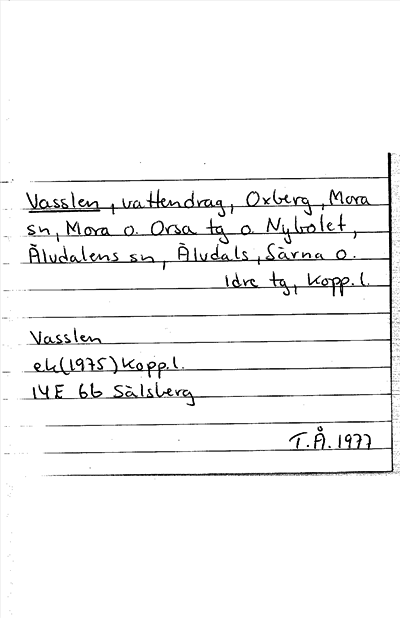 Vasslen, vattendrag, Oxberg, Mora
sn, Mora o. Orsa tg o. Nybolet,
Älvdalens sn, Älvdals, Särna o.
Idre tg, Kopp.l.
Vasslen
ek(1975)Kopp.l.
14E 6b Sälsberg
T.Å.1977